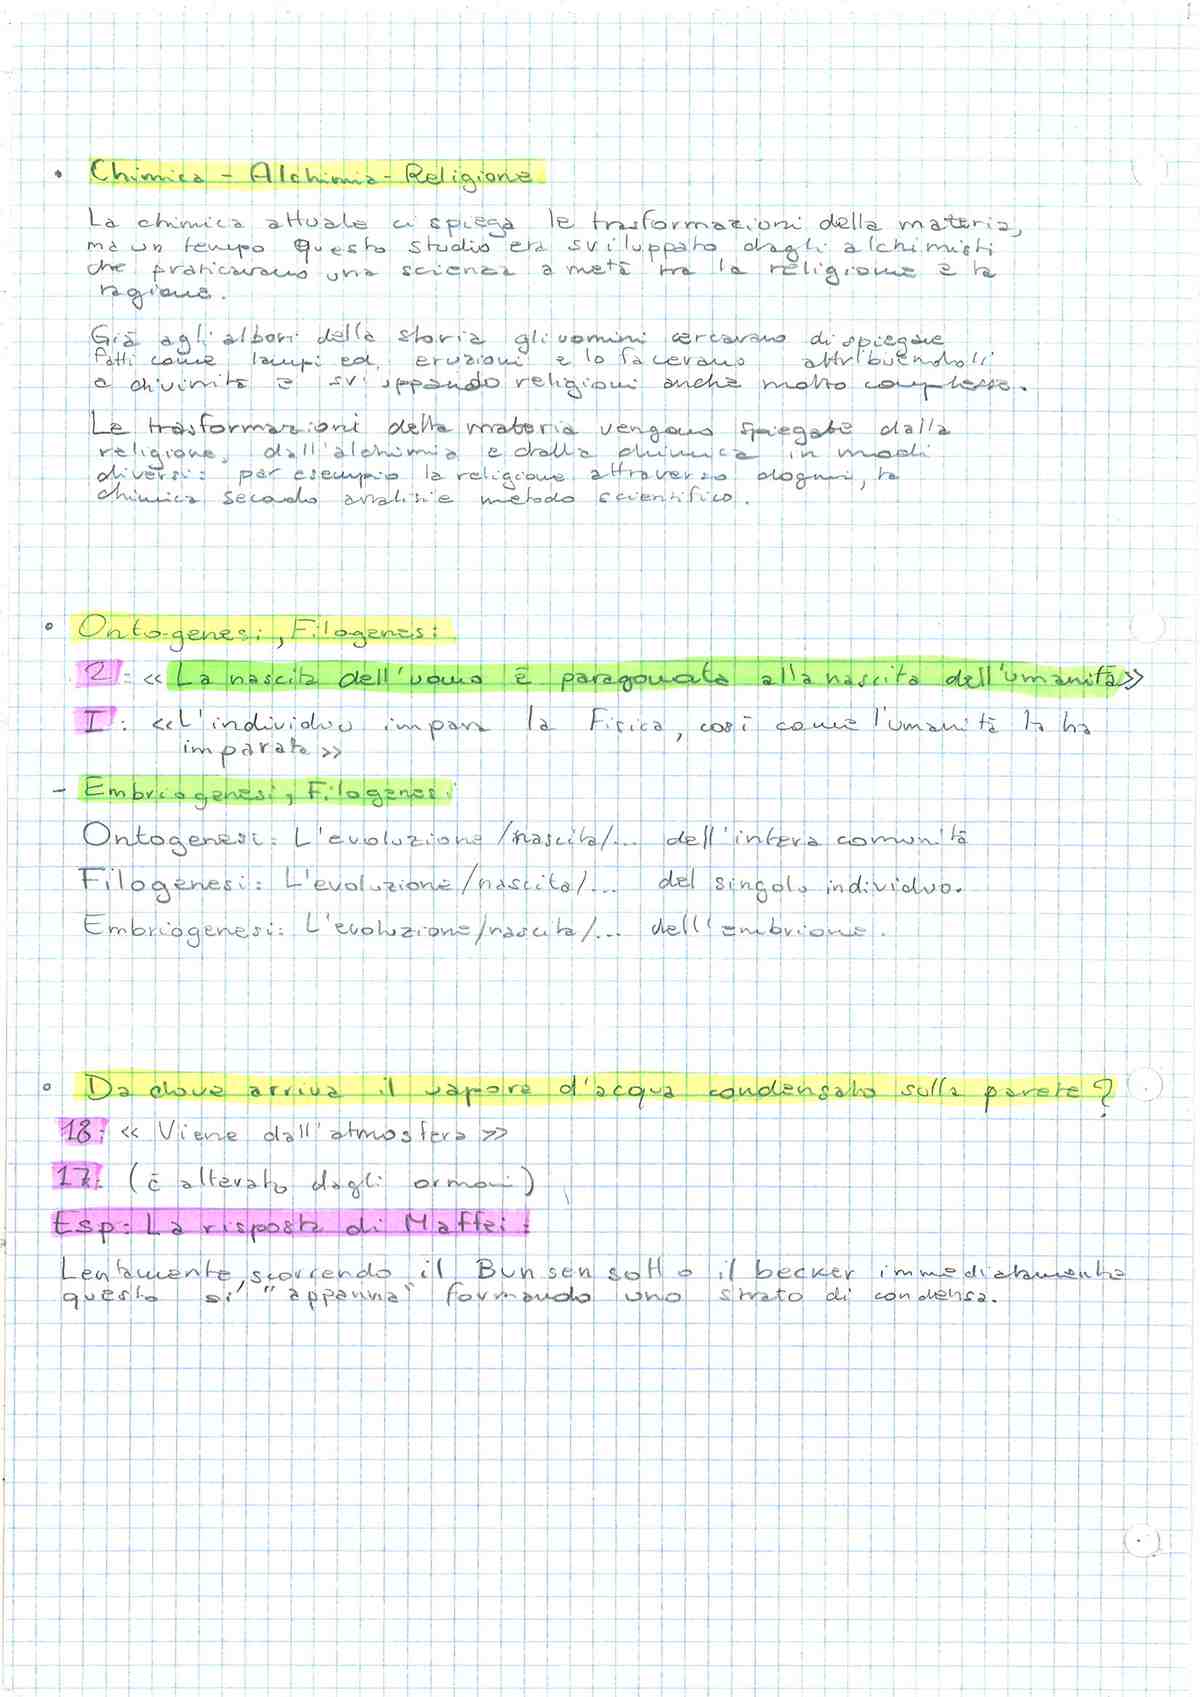 • Chimica - Alchimia - Religione
La chimica attuale ci spiega le trasformazioni della materia,
ma un tempo questo studio era sviluppato dagli alchimisti
che praticavano una scienza a metà tra la religione e la
ragione.
Già agli albori della storia gli uomini cercavano di spiegare
fatti come lampi ed eruzioni e lo facevano attribuendoli
a divinità e sviluppando religioni anche molto complesse.
Le trasformazioni della materia vengono spiegate dalla
religione, dall'alchimia e dalla chimica in modi
diversi: per esempio la religione attraverso dogmi, la
chimica secondo analisi e metodo scientifico.
• Ontogenesi, Filogenesi
2: «La nascita dell'uomo è paragonata alla nascita dell'umanità»
I: «L'individuo impara la Fisica, così come l'umanità la ha
imparata»
- Embriogenesi, Filogenesi
Ontogenesi: L'evoluzione/nascita/... dell'intera comunità
Filogenesi: L'evoluzione/nascita/... del singolo individuo.
Embriogenesi: L'evoluzione/nascita/... dell'embrione.
• Da dove arriva il vapore d'acqua condensato sulla parete?
18: «Viene dall'atmosfera»
17: (è alterato dagli ormoni)
Esp: La risposta di Maffei:
Lentamente, scorrendo il Bunsen sotto il becker immediatamente
questo si "appanna" formando uno strato di condensa.